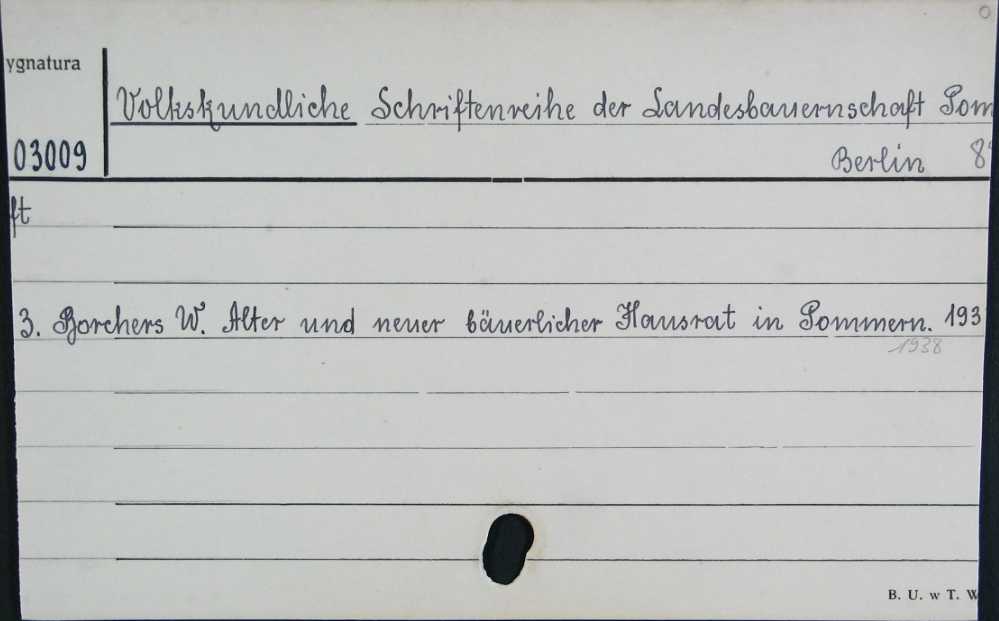 0
ygnatura
Volkskundliche Schriftenreihe der Landesbauernschaft Pom
03009
Berlin 8°
ft
3. Borchers W. Alter und neuer bäuerlicher Hausrat in Pommern. 193
1938
B. U. w T. W